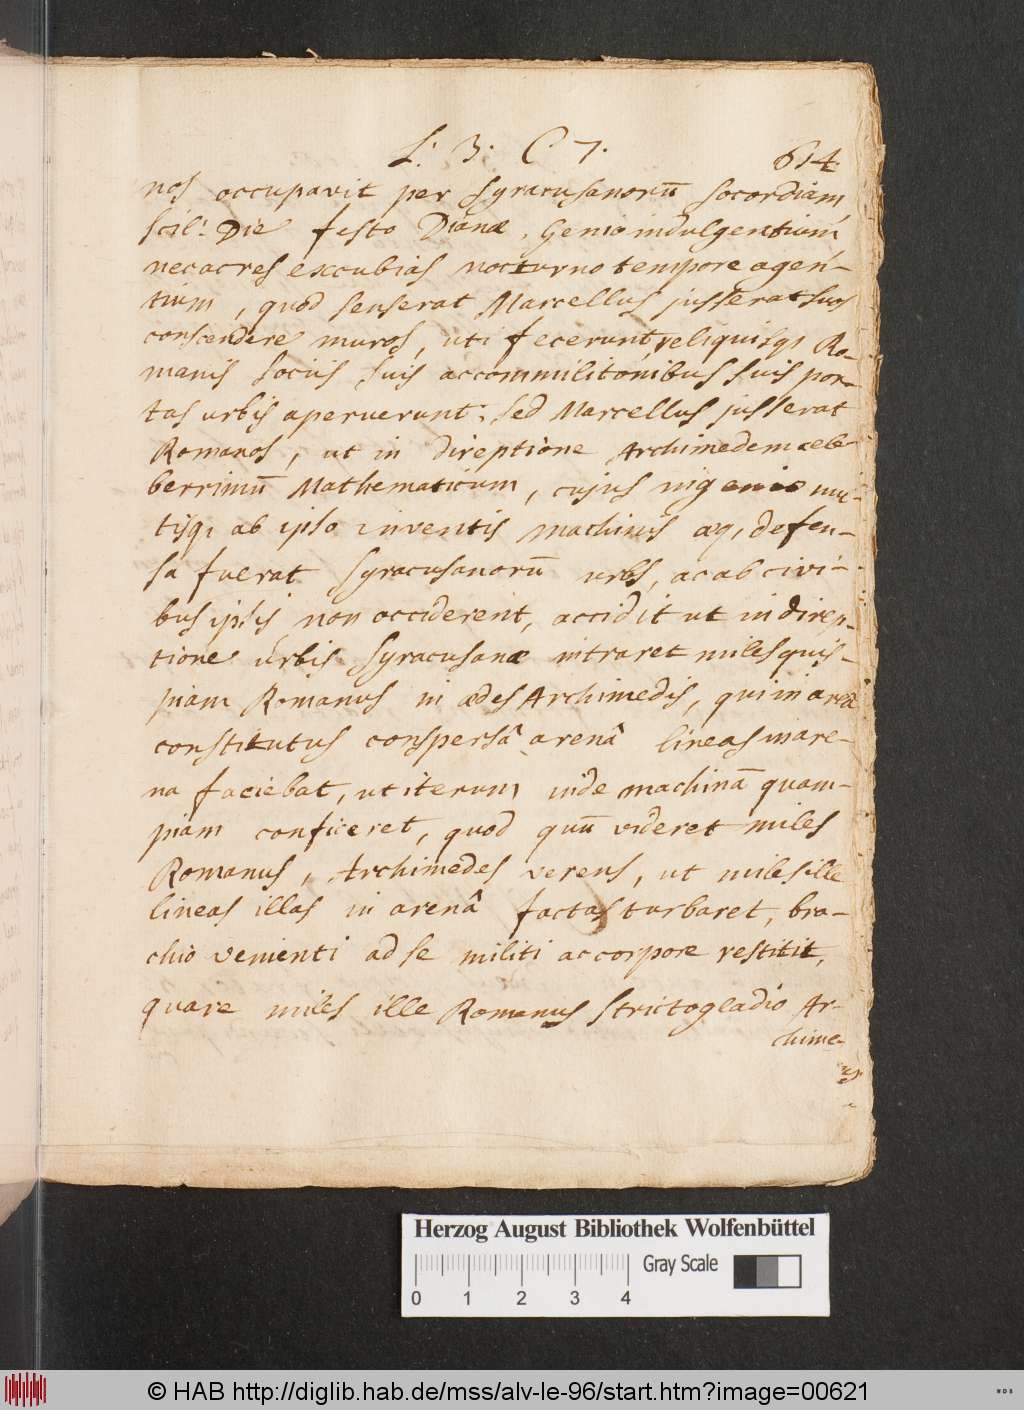 L: 3: C 7.
614
nos occupavit per Syracusanorū socordiam,
scil: Die festo Dianæ, Genio indulgentium
nec acres excubias nocturno tempore agen-
tium, quod senserat Marcellus jusserat suos
conscendere muros, uti fecerunt, reliquisq; Ro-
manis sociis suis accommilitonibus suis por-
tas urbis aperuerunt; sed Marcellus jusserat
Romanos, ut in direptione Archimedem cele-
berrimū Mathematicum, cujus ingenio mul-
tisq; ab ipso inventis machinis æq; defen-
sa fuerat Syracusanorū urbs, ac ab civi-
bus ipsis non occiderent, accidit ut in direp-
tione urbis Syracusanæ intraret miles quis-
piam Romanus in ædes Archimedis, qui in area
constitutus conspersâ arenâ lineas in are-
na faciebat, ut iterum inde machinā quam-
piam conficeret, quod quū videret miles
Romanus, Archimedes verens, ut miles ille
lineas illas in arenâ factas turbaret, bra-
chio venienti ad se militi ac corpore restitit,
quare miles ille Romanus stricto gladio Ar-
chime-
Herzog August Bibliothek Wolfenbüttel
Gray Scale
0 1 2 3 4
© HAB http://diglib.hab.de/mss/alv-le-96/start.htm?image=00621